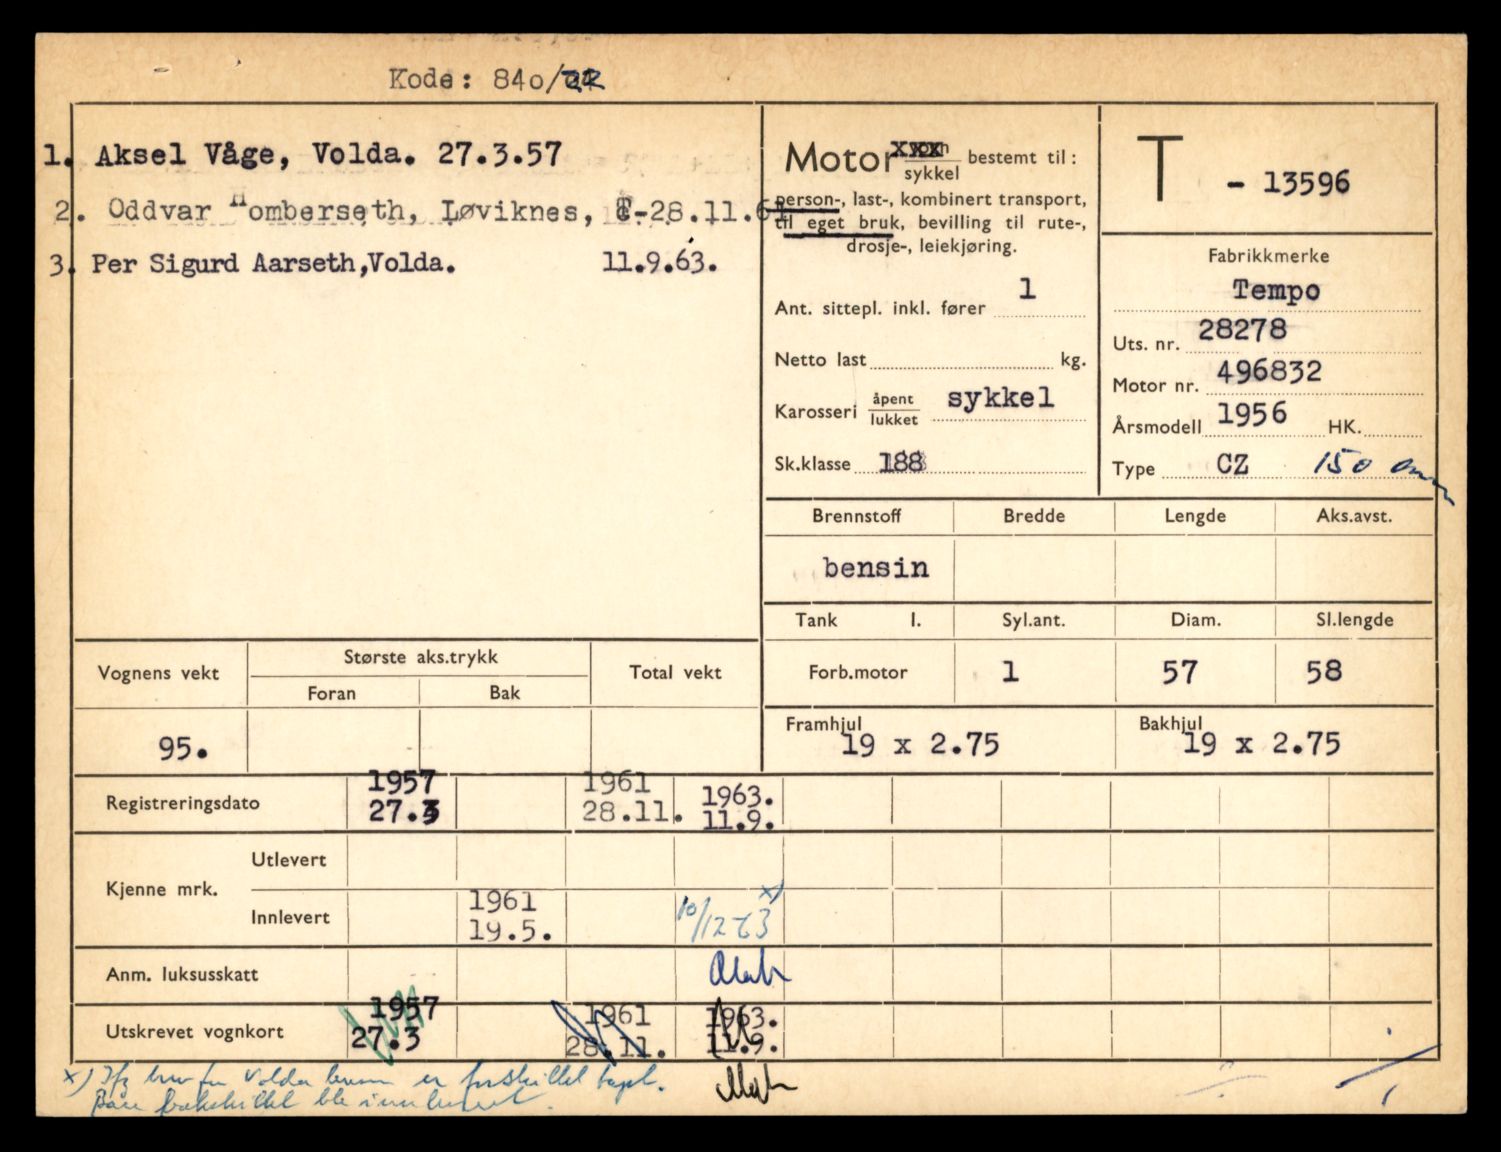 Kode: 840/
1. Aksel Våge, Volda. 27.3.57
2. Oddvar Homberseth, Løviknes, 28.11.61
3. Per Sigurd Aarseth, Volda. 11.9.63.
Motor xxx sykkel bestemt til:
person-, last-, kombinert transport,
til eget bruk, bevilling til rute-,
drosje-, leiekjøring.
Ant. sittepl. inkl. fører 1
Netto last kg.
Karosseri åpent lukket sykkel
Sk.klasse 188
T - 13596
Fabrikkmerke
Tempo
Uts. nr. 28278
Motor nr. 496832
Årsmodell 1956 HK.
Type CZ 150
Brennstoff Bredde Lengde Aks.avst.
bensin
Tank l. Syl.ant. Diam. Sl.lengde
Forb.motor 1 57 58
Framhjul Bakhjul
19 x 2.75 19 x 2.75
Vognens vekt Største aks.trykk Total vekt
Foran Bak
95.
Registreringsdato 1957 27.3 1961 28.11. 1963. 11.9.
Kjenne mrk. Utlevert
Innlevert 1961 19.5. 10/12-63 x)
Anm. luksusskatt
Utskrevet vognkort 1957 27.3 1961 28.11. 1963. 11.9.
x) Ifg brev fra Volda er forskiltet tapt.
Bare bakskiltet ble innlevert.